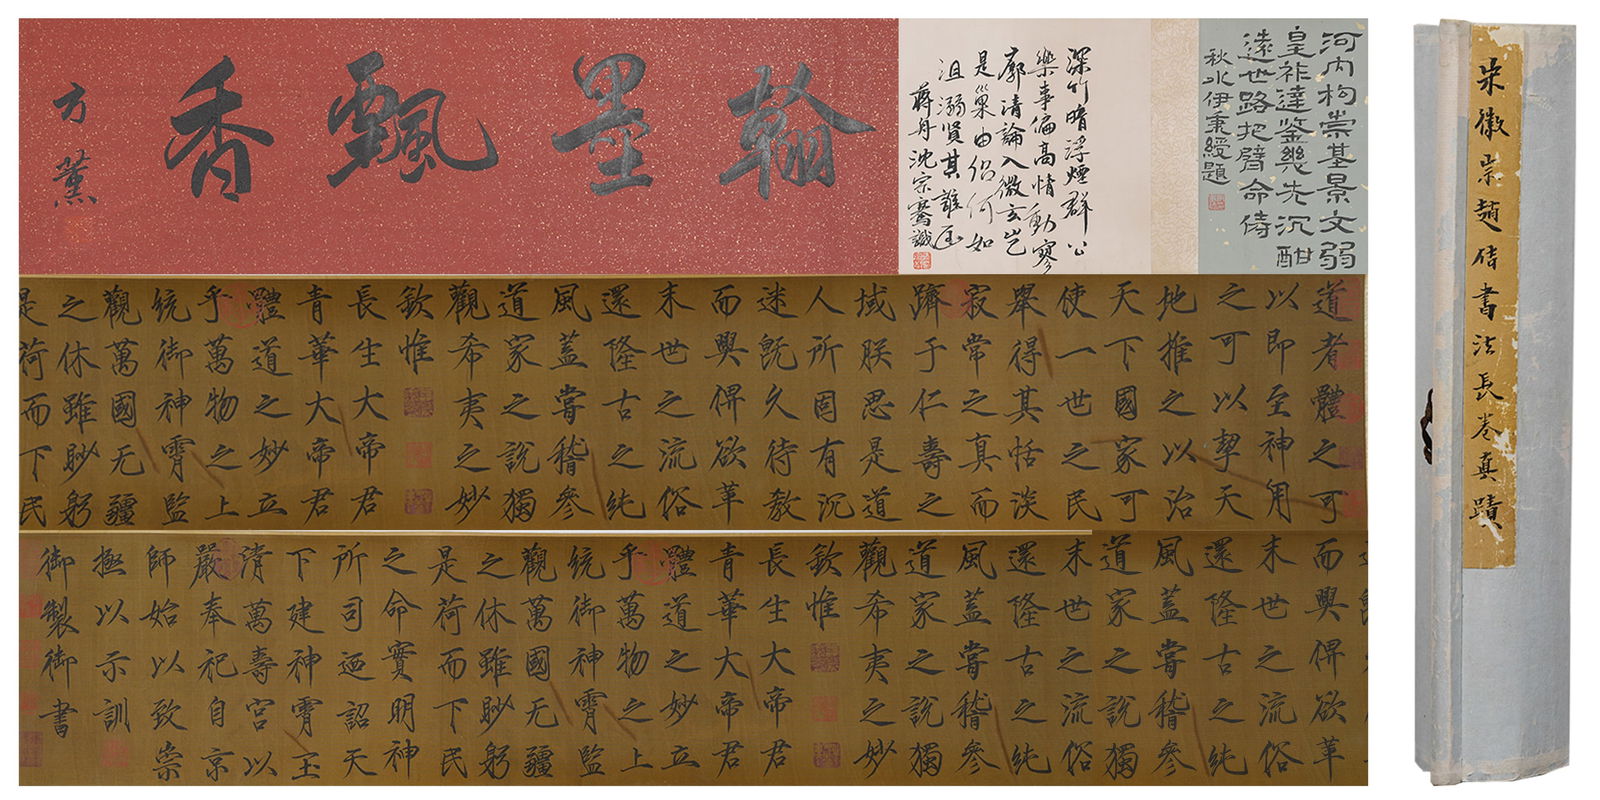 河内构崇基景文弱
皇祚達鑒幾先沉酣
遠世路把臂命儔
秋水伊秉綬題
深竹暗浮煙群公
樂事偏高情動寥
廓清論入微玄豈
是巢由侶何如
沮溺賢其誰
蔣舟沈宗騫識
翰墨飄香
方薰
道者體之可
以即至神用
之可以挈天
地推之以治
天下國家可
使一世之民
舉得其恬淡
寂常之真而
躋于仁壽之
域朕思是道
人所固有沉
迷既久待教
而興俾欲革
末世之流俗
還隆古之純
風蓋嘗稽參
道家之說獨
觀希夷之妙
欽惟
長生大帝君
青華大帝君
體道之妙立
乎萬物之上
統御神霄監
觀萬國无疆
之休雖眇躬
是荷而下民
而興俾欲革
末世之流俗
還隆古之純
風蓋嘗稽參
道家之說獨
末世之流俗
還隆古之純
風蓋嘗稽參
道家之說獨
觀希夷之妙
欽惟
長生大帝君
青華大帝君
體道之妙立
乎萬物之上
統御神霄監
觀萬國无疆
之休雖眇躬
是荷而下民
之命實明神
所司迺詔天
下建神霄玉
清萬壽宮以
嚴奉祀自京
師始以致崇
極以示訓
御製御書
宋徽宗趙佶書法長卷真蹟